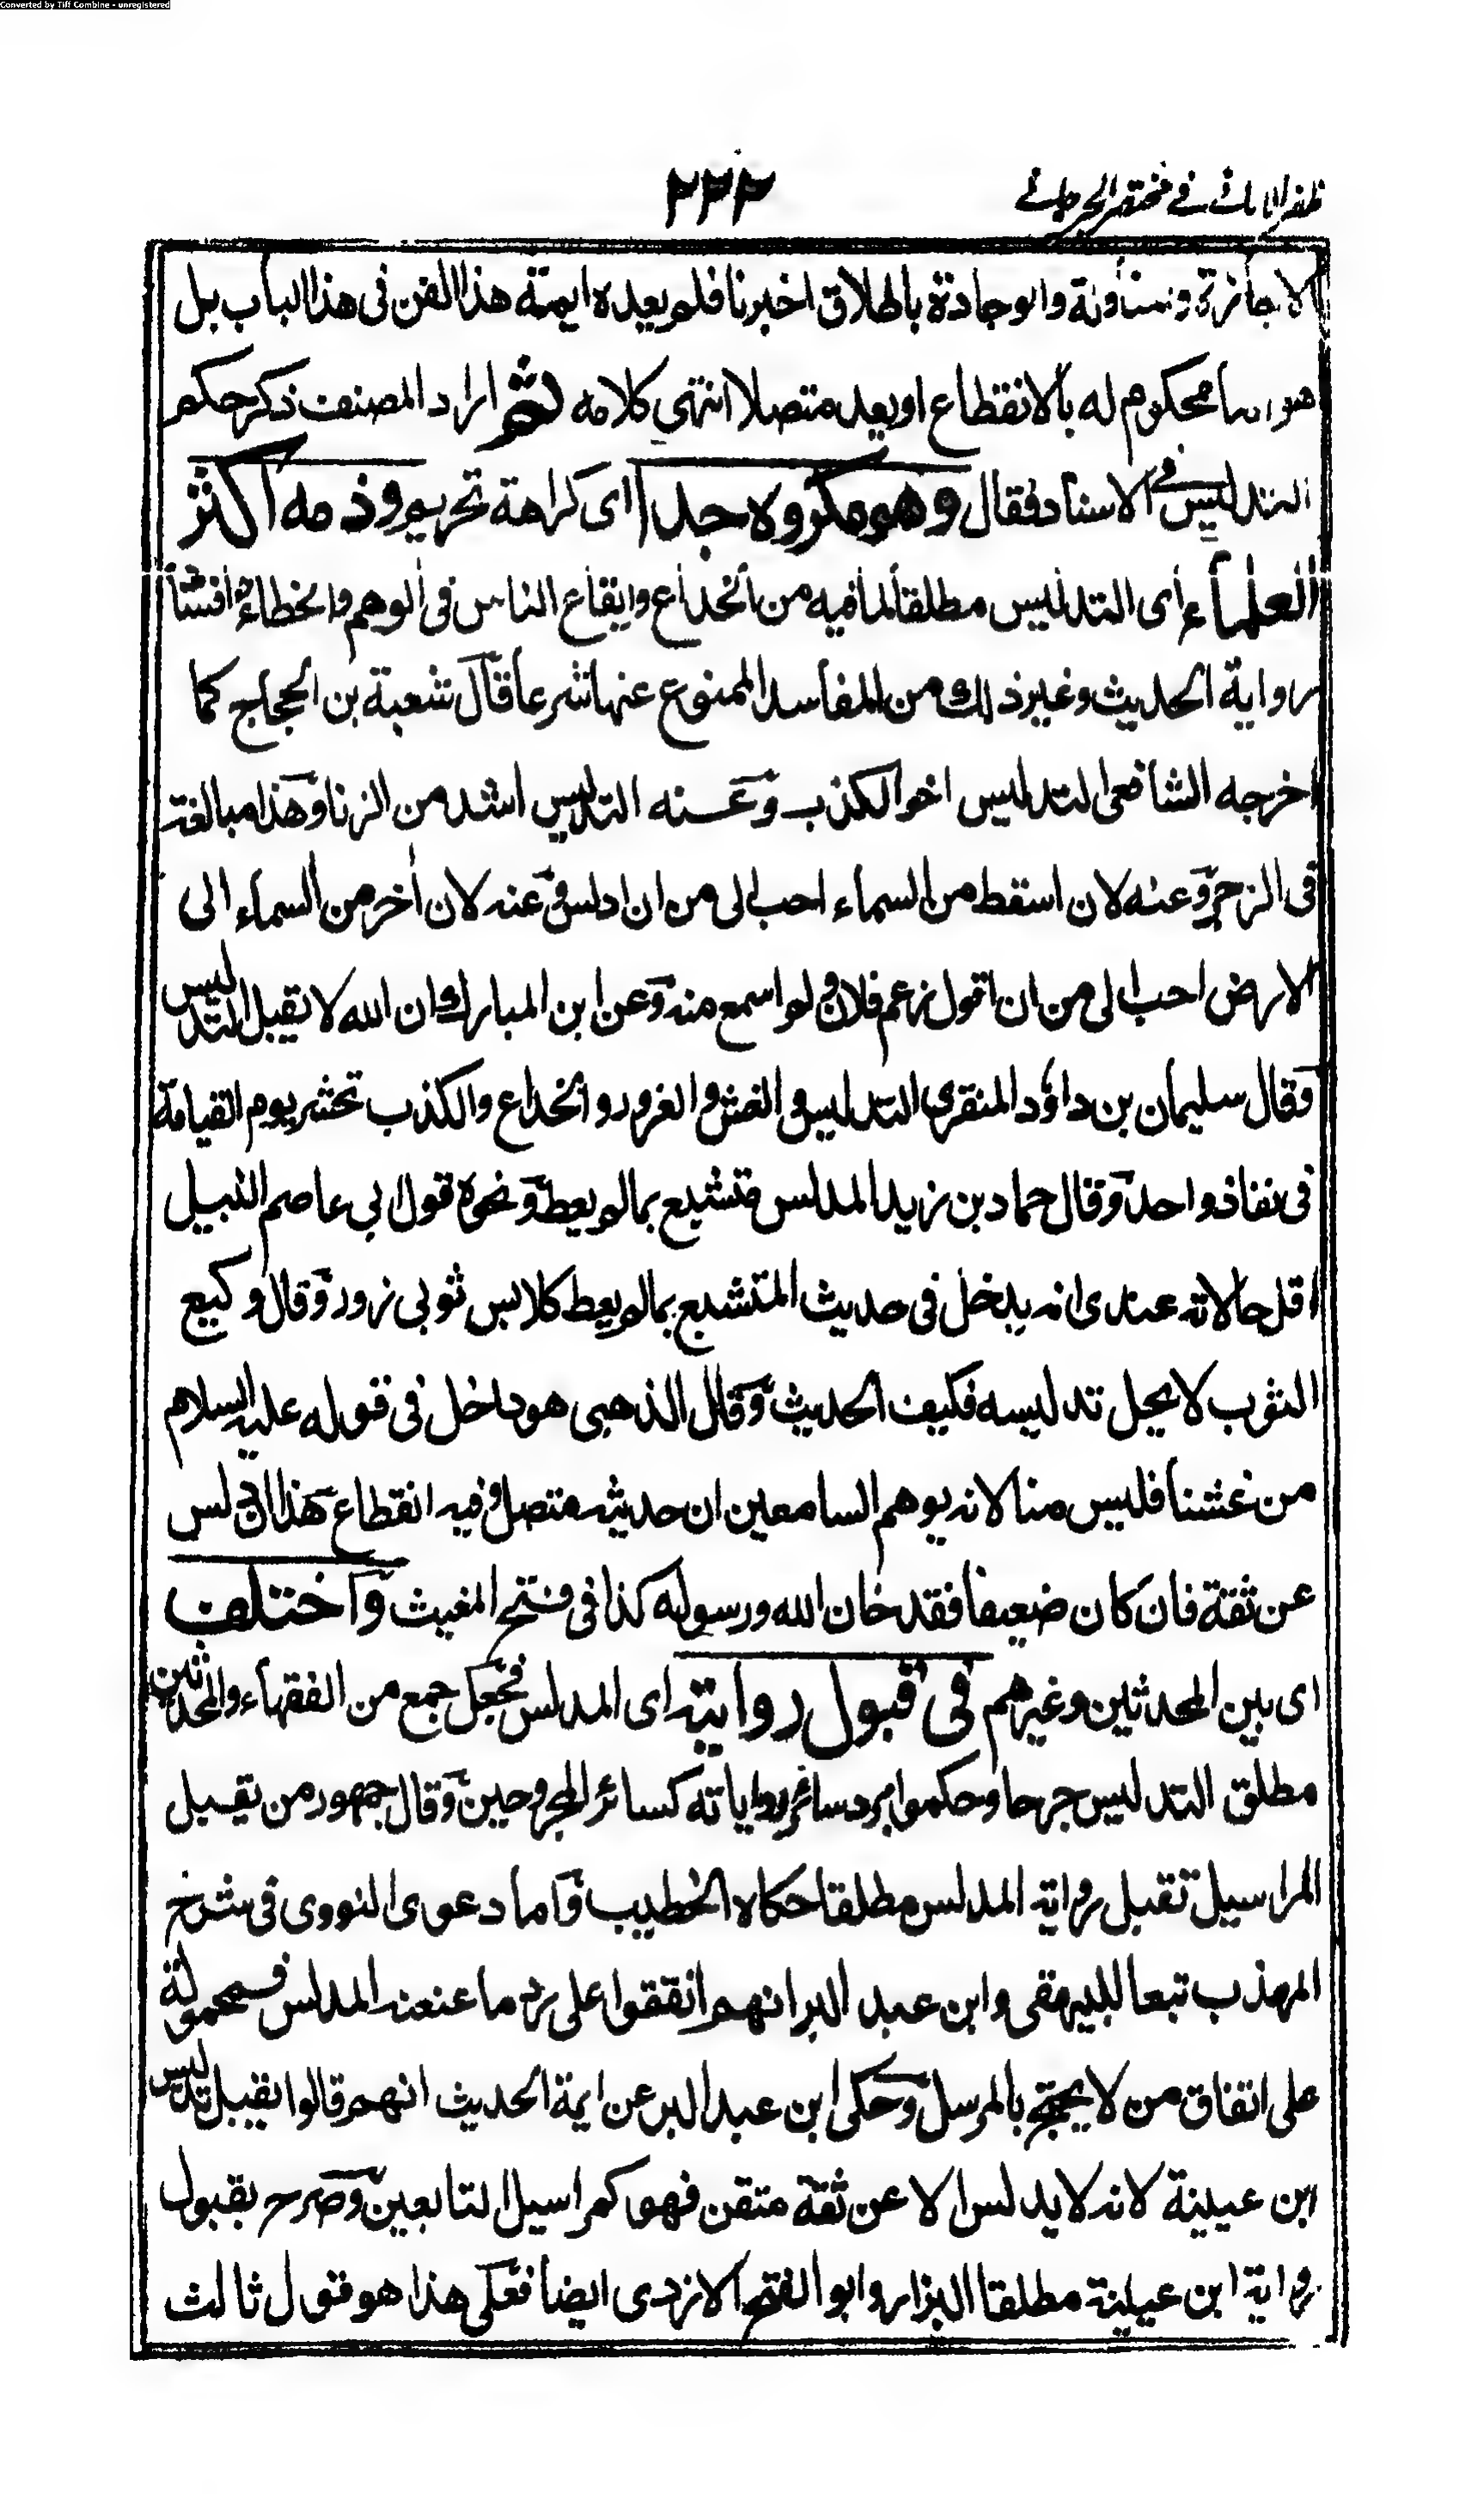 Converted by Tiff Combine - unregistered
ظفر الاماني في مختصر الجرجاني
٢٣٢
الاجازة والمناولة والوجادة باطلاق اخبرنا فلم يعده ايمة هذا الفن في هذا الباب بل
هو اما محكوم له بالانقطاع او يعد متصلا انتهى كلامه ثم اراد المصنف ذكر حكم
التدليس في الاسناد فقال وهو مكروه جدا اى كراهة تحريم وذمه اكثر
العلماء اى التدليس مطلقا لما فيه من الخداع وايقاع الناس في الوهم والخطاء وافشاء
رواية الحديث وغير ذلك من المفاسد الممنوع عنها شرعا قال شعبة بن الحجاج كما
اخرجه الشافعى التدليس اخو الكذب وعنه التدليس اشد من الزنا وهذا مبالغة
في الزجر وعنه لان اسقط من السماء احب الى من ان ادلس وعنه لان اخر من السماء الى
الارض احب الى من ان اقول زعم فلان ولم اسمع منه وعن ابن المبارك ان الله لا يقبل التدليس
وقال سليمان بن داؤد المنقرى التدليس والغش والغرور والخداع والكذب تحشر يوم القيامة
في نفاذ واحد وقال حماد بن زيد المدلس متشبع بما لم يعط ونحوه قول ابى عاصم النبيل
اقل حالاته عندى انه يدخل في حديث المتشبع بما لم يعط كلابس ثوبى زور وقال وكيع
الثوب لا يحل تدليسه فكيف الحديث وقال الذهبى هو داخل في قوله عليه السلام
من غشنا فليس منا لانه يوهم السامعين ان حديثه متصل وفيه انقطاع هذا ان دلس
عن ثقة فان كان ضعيفا فقد خان الله ورسوله كذا في فتح المغيث واختلف
اى بين المحدثين وغيرهم في قبول روايته اى المدلس فجعل جمع من الفقهاء والمحدثين
مطلق التدليس جرحا وحكموا برد سائر رواياته كسائر المجروحين وقال جمهور من يقبل
المراسيل تقبل رواية المدلس مطلقا حكاه الخطيب واما دعوى النووى في شرح
المهذب تبعا للبيهقى وابن عبد البر انهم اتفقوا على رد ما عنعنه المدلس فمحمولة
على اتفاق من لا يحتج بالمرسل وحكى ابن عبد البر عن ايمة الحديث انهم قالوا يقبل تدليس
ابن عيينة لانه لا يدلس الا عن ثقة متقن فهو كمراسيل التابعين وصرح بقبول
رواية ابن عيينة مطلقا البزار وابو الفتح الازدى ايضا فعلى هذا هو قول ثالث